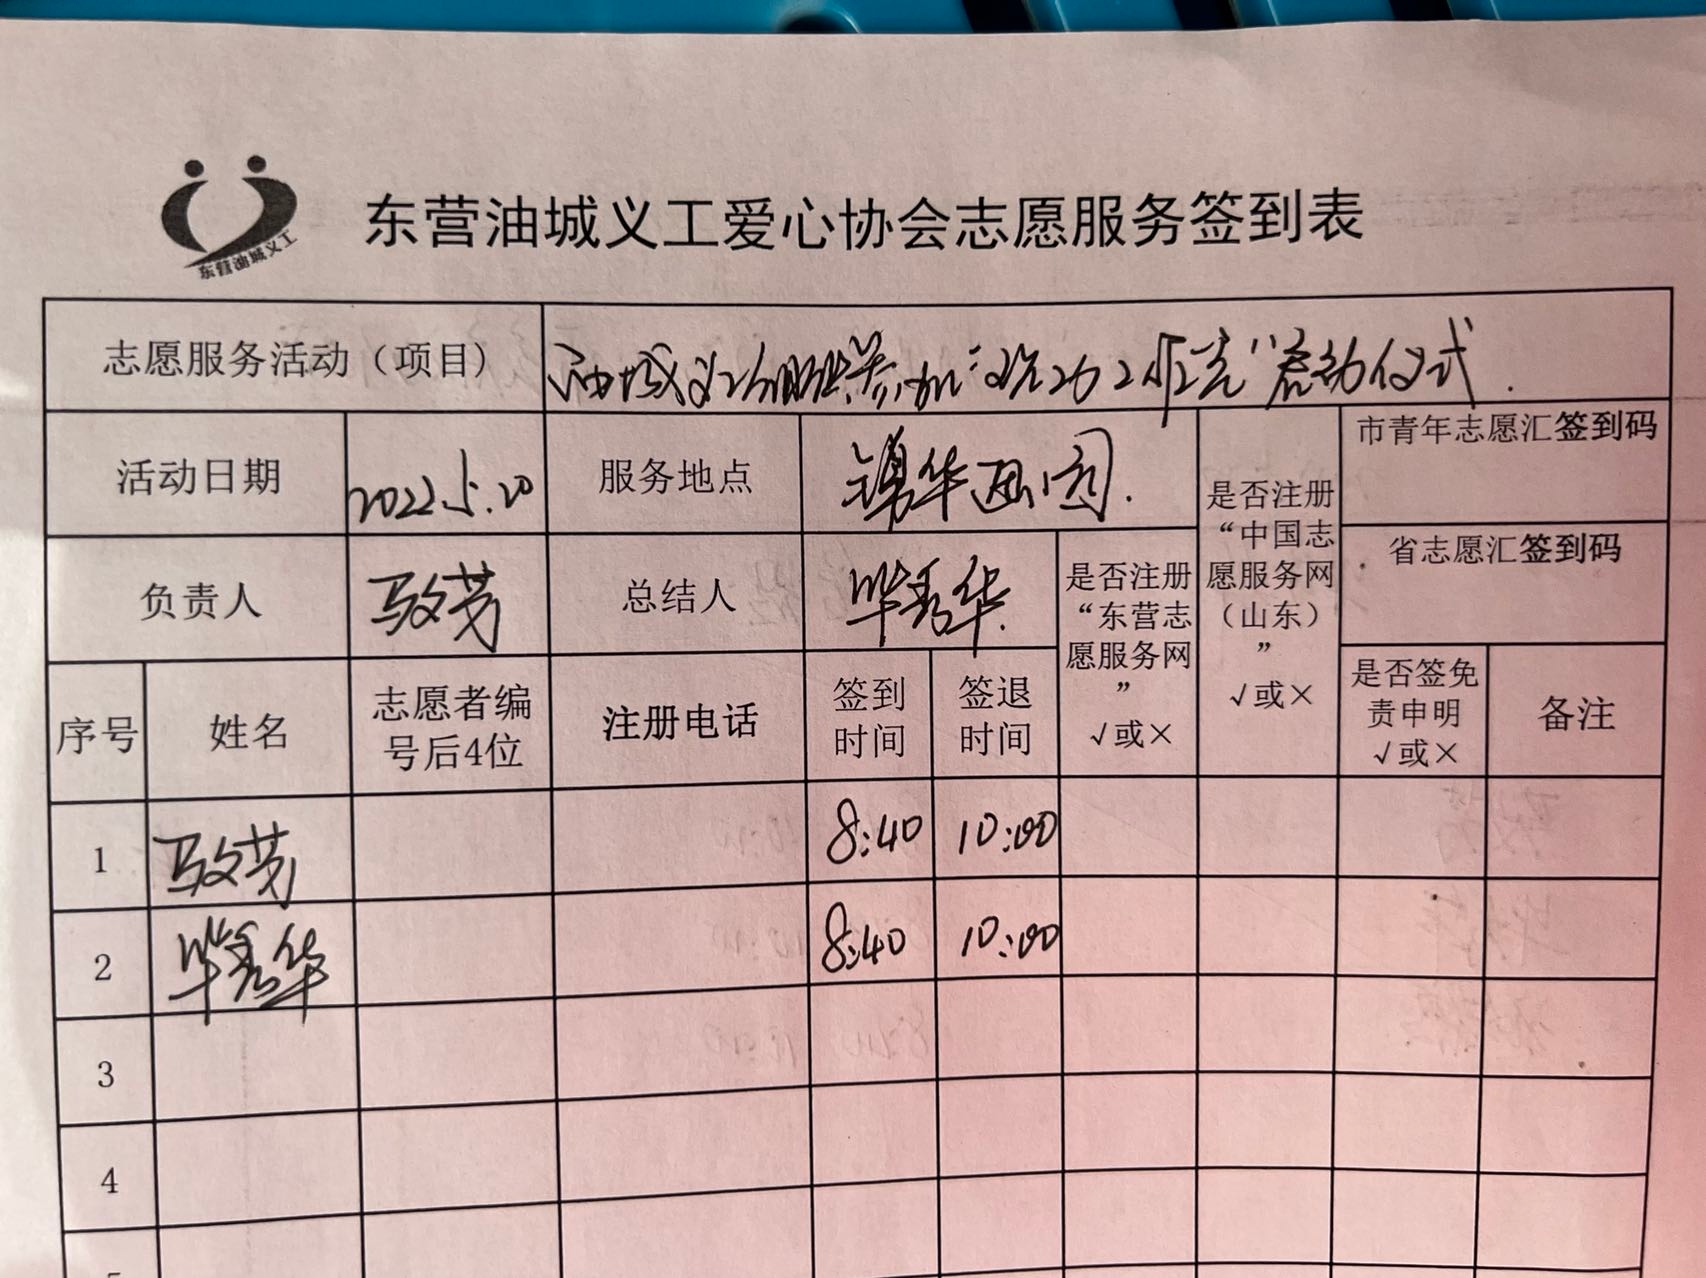 东营油城义工
东营油城义工爱心协会志愿服务签到表
志愿服务活动（项目） 油城义工 参加 启动仪式.
活动日期 2022.5.20 服务地点 锦华 园.
是否注册“中国志愿服务网（山东）” √或×
市青年志愿汇签到码
省志愿汇签到码
负责人 马文芳 总结人 毕秀华.
是否注册“东营志愿服务网” √或×
序号 姓名 志愿者编号后4位 注册电话 签到时间 签退时间 是否签免责申明 √或× 备注
1 马文芳 8:40 10:00
2 毕秀华 8:40 10:00
3
4
5